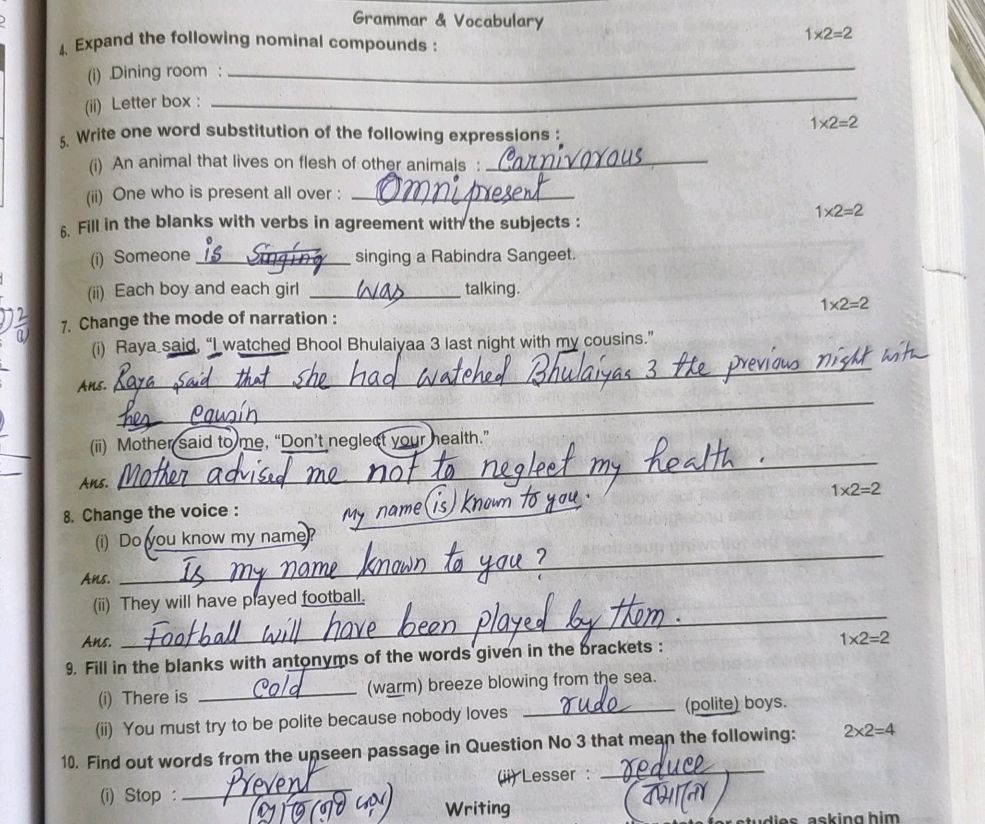 Grammar & Vocabulary
4. Expand the following nominal compounds : 1×2=2
(i) Dining room :
(ii) Letter box :
5. Write one word substitution of the following expressions : 1×2=2
(i) An animal that lives on flesh of other animals : Carnivorous
(ii) One who is present all over : Omnipresent
6. Fill in the blanks with verbs in agreement with the subjects : 1×2=2
(i) Someone is Singing singing a Rabindra Sangeet.
(ii) Each boy and each girl was talking.
7. Change the mode of narration : 1×2=2
(i) Raya said, “I watched Bhool Bhulaiyaa 3 last night with my cousins.”
Ans. Raya said that she had watched Bhulaiyas 3 the previous night with
her cousin
(ii) Mother said to me, “Don't neglect your health.”
Ans. Mother advised me not to neglect my health.
8. Change the voice : My name is known to you. 1×2=2
(i) Do you know my name?
Ans. Is my name known to you?
(ii) They will have played football.
Ans. Football will have been played by them.
9. Fill in the blanks with antonyms of the words given in the brackets : 1×2=2
(i) There is cold (warm) breeze blowing from the sea.
(ii) You must try to be polite because nobody loves rude (polite) boys.
10. Find out words from the unseen passage in Question No 3 that mean the following: 2×2=4
(i) Stop : Prevent (ii) Lesser : reduce
(কমানো)
Writing
for studies, asking him